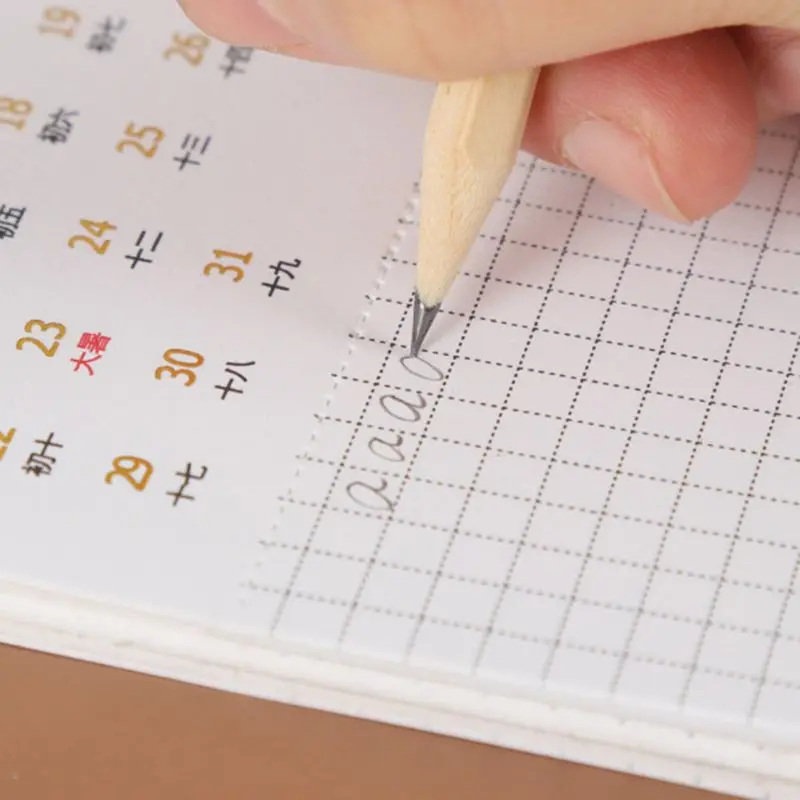 18 19
初五 初六 初七
23 24 25 26
初十 大暑 十二 十三 十四
29 30 31
十七 十八 十九
a a a